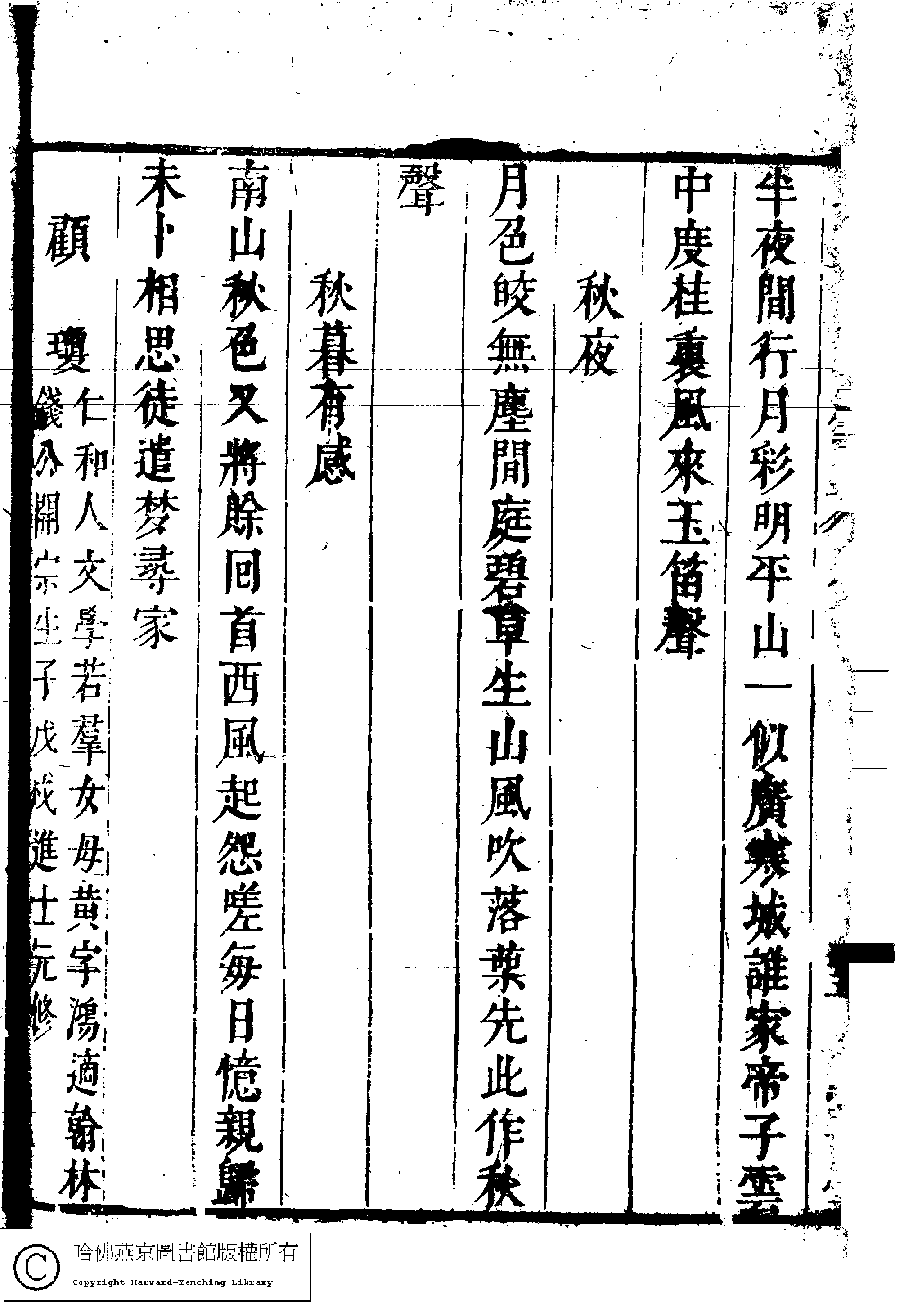 半夜閒行月彩明平山一似廣寒城誰家帝子雲
中度桂裏風來玉笛聲
秋夜
月色皎無塵閒庭碧草生山風吹落葉先此作秋
聲
秋暮有感
南山秋色又將賖回首西風起怨嗟每日憶親歸
未卜相思徒遣梦尋家
顧瓊
仁和人文學若羣女母黃字鴻適翰林
錢 開宗生子戊戌進士元修
哈佛燕京圖書館版權所有
Copyright Harvard-Yenching Library